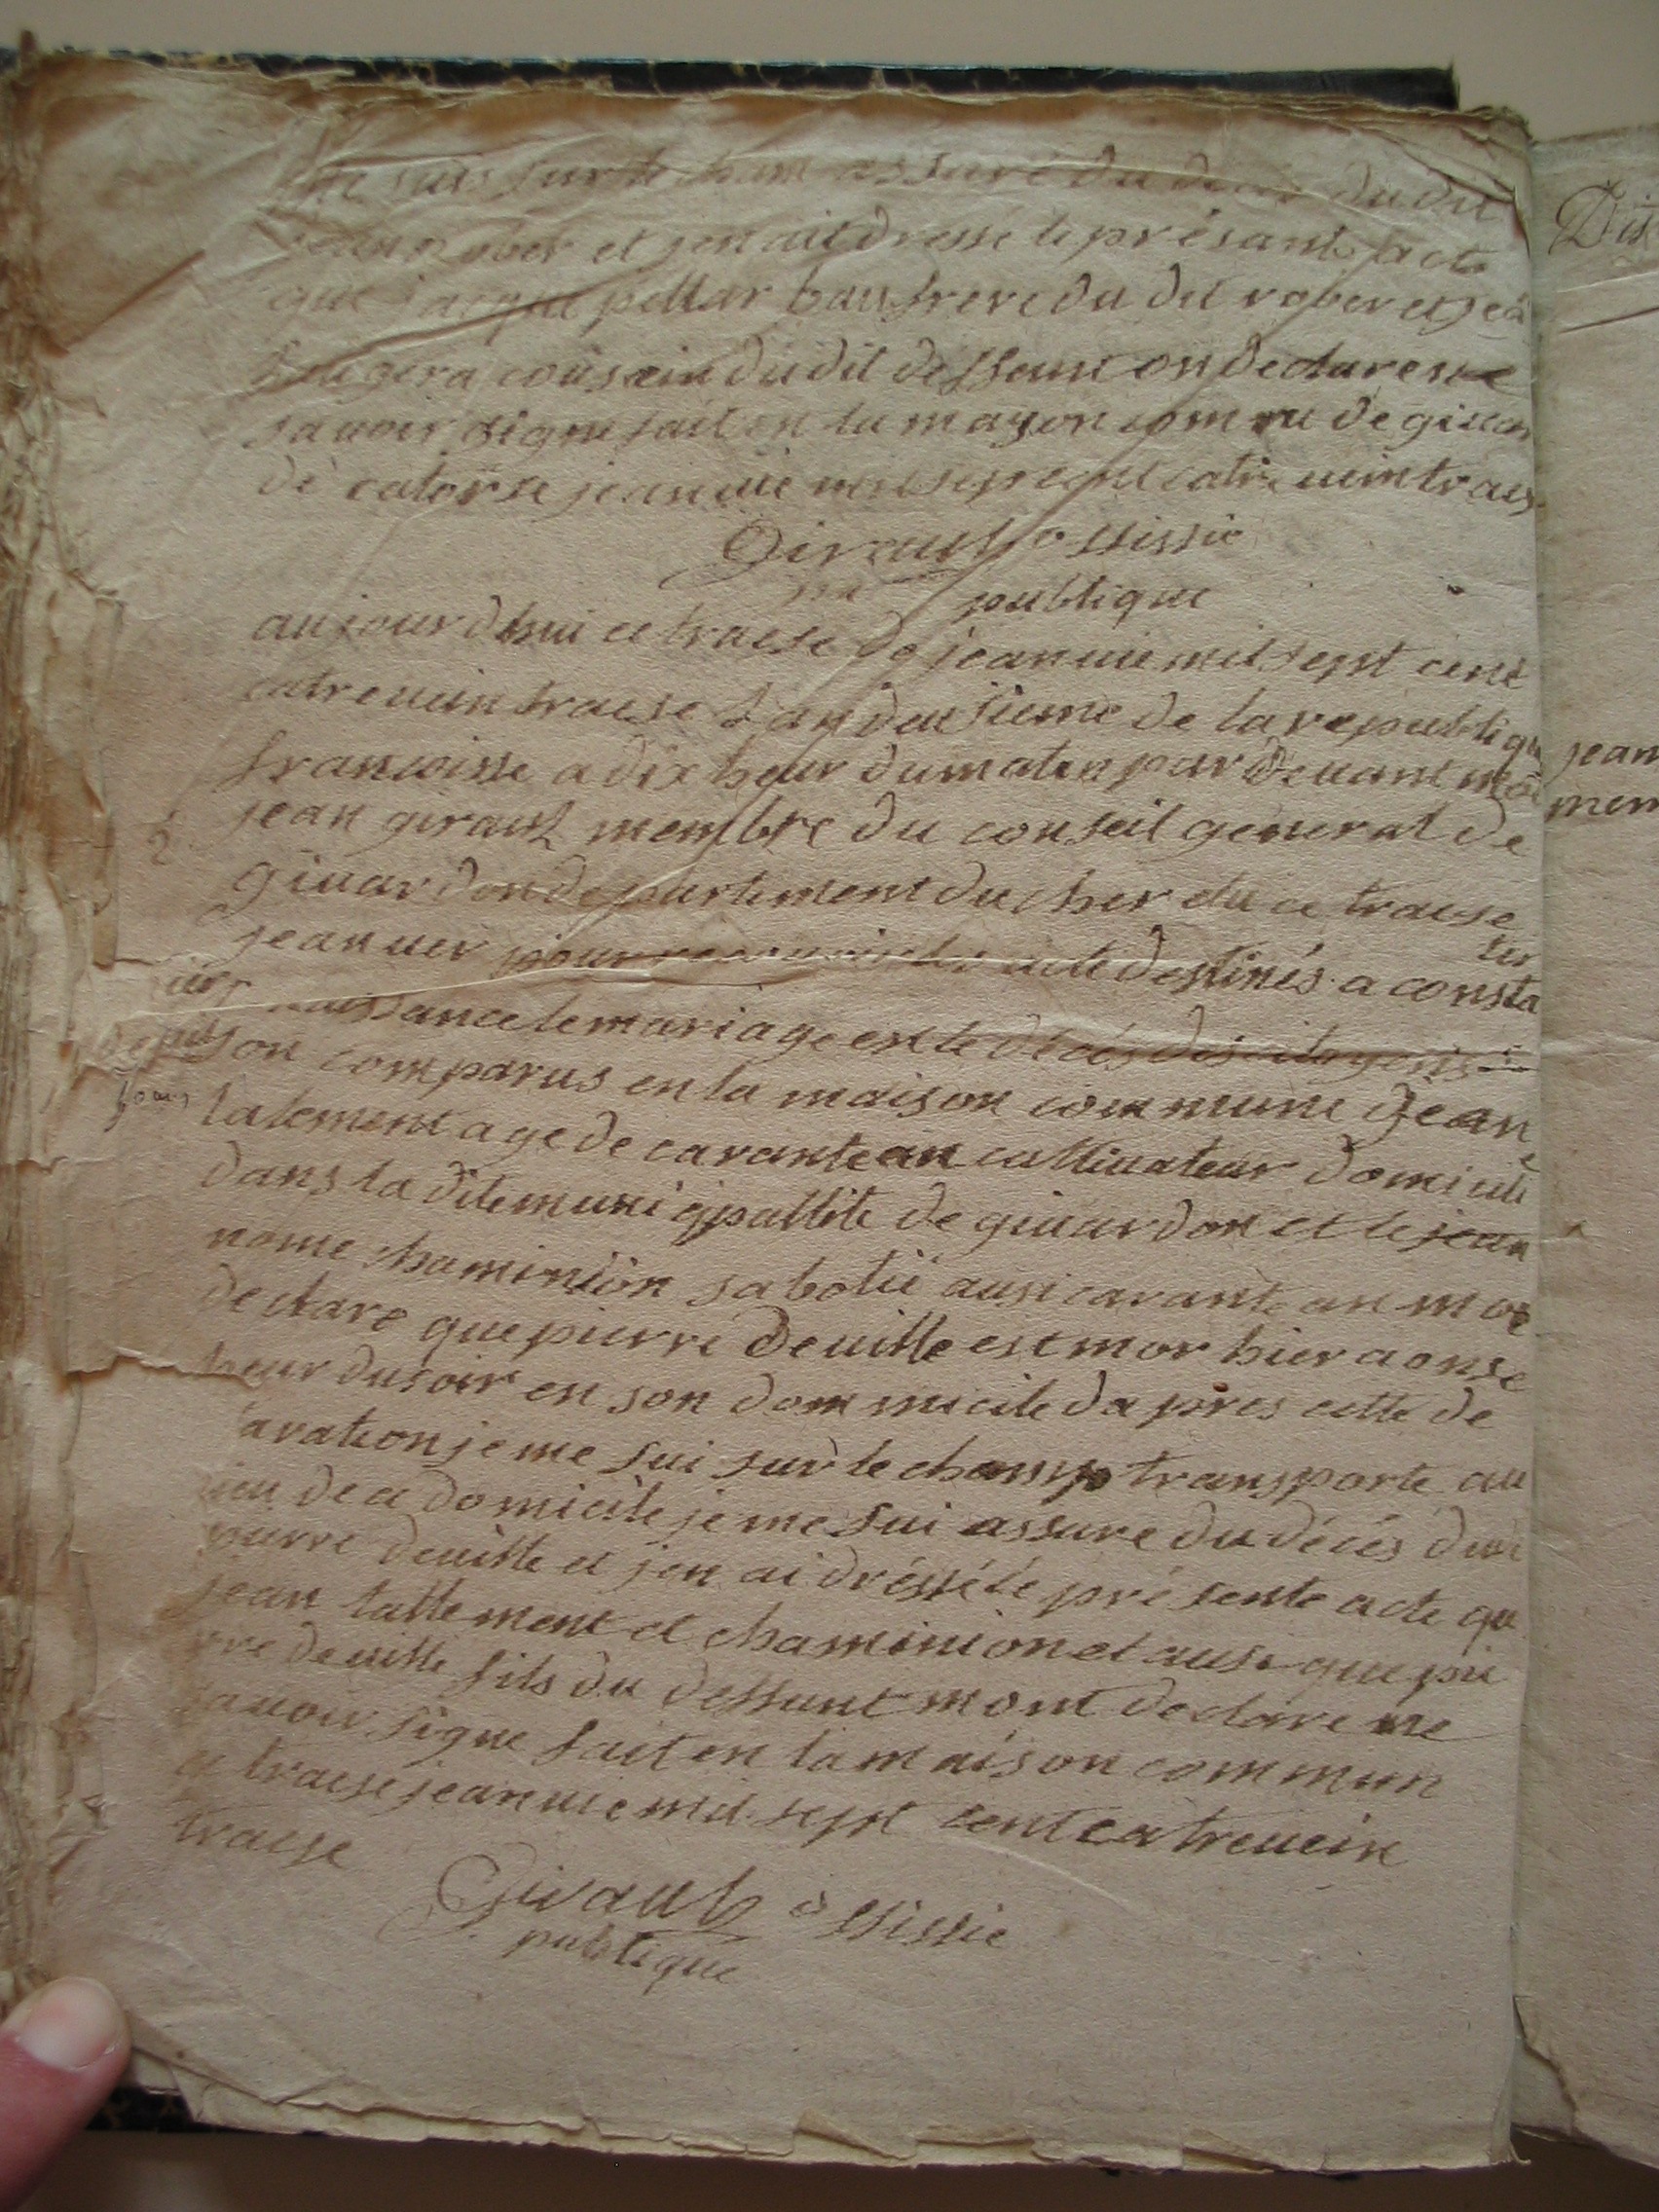 me suis sur le cham assuré du deces du dit
jean rober et jen ait dressé le présante acte
que jacque pellar bau frere du dit rober et jea
cousain du dit deffeunt on declare ne
savoir signe fait en la mayson commu de givar
de catorse jeanvie mil sept cent catre vein traese
Girault o ffissié
publique
aujourdhui ce traese de jeanvie mil sept cent
catre vein traese lan deusieme de la republique
francoisse a dix heur du maten par devant moi
jean girault membre du conseil general de
givardon departement du cher elu ce traese
jeanvier pour recevoir les acte destinés a consta
ter
naissance le mariage ex le décés des citoyens
son comparus en la maison commune Jean
talement age de carante an cultivateur domicilé
dans la dite municipallité de givardon et le jean
nome chaminion sabotié ausi carante an mon
declare que pierre deville est mor hier a onse
heur du soir en son dommicile da pres cette de
laration je me sui sur le champ transporte au
lieu de ce domicile je me sui assure du décés dudi
pierre deville et jen ai dréssé le présente acte que
jean tallement et chaminion et ausi que pie
rre deville fils du deffunt mont declare ne
savoir signe fait en la maison commun
ce traese jeanvie mil sept cent catre vein
traese
Girault o ffissie
publique
jean
mem